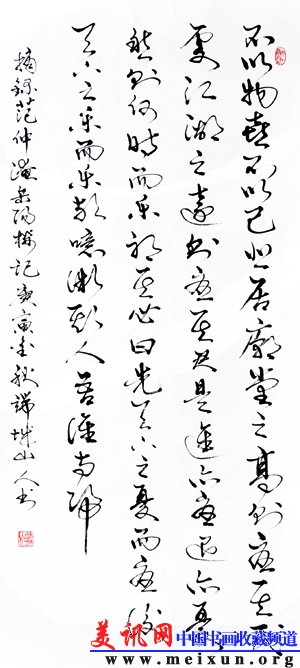 不以物喜不以己悲居庙堂之高则忧其民
处江湖之远则忧其君是进亦忧退亦忧
然则何时而乐耶其必曰先天下之忧而忧后
天下之乐而乐欤噫微斯人吾谁与归
摘录范仲淹岳阳楼记庚寅金秋瑞城山人书
美讯网 中国书画收藏频道
www.meixun.org